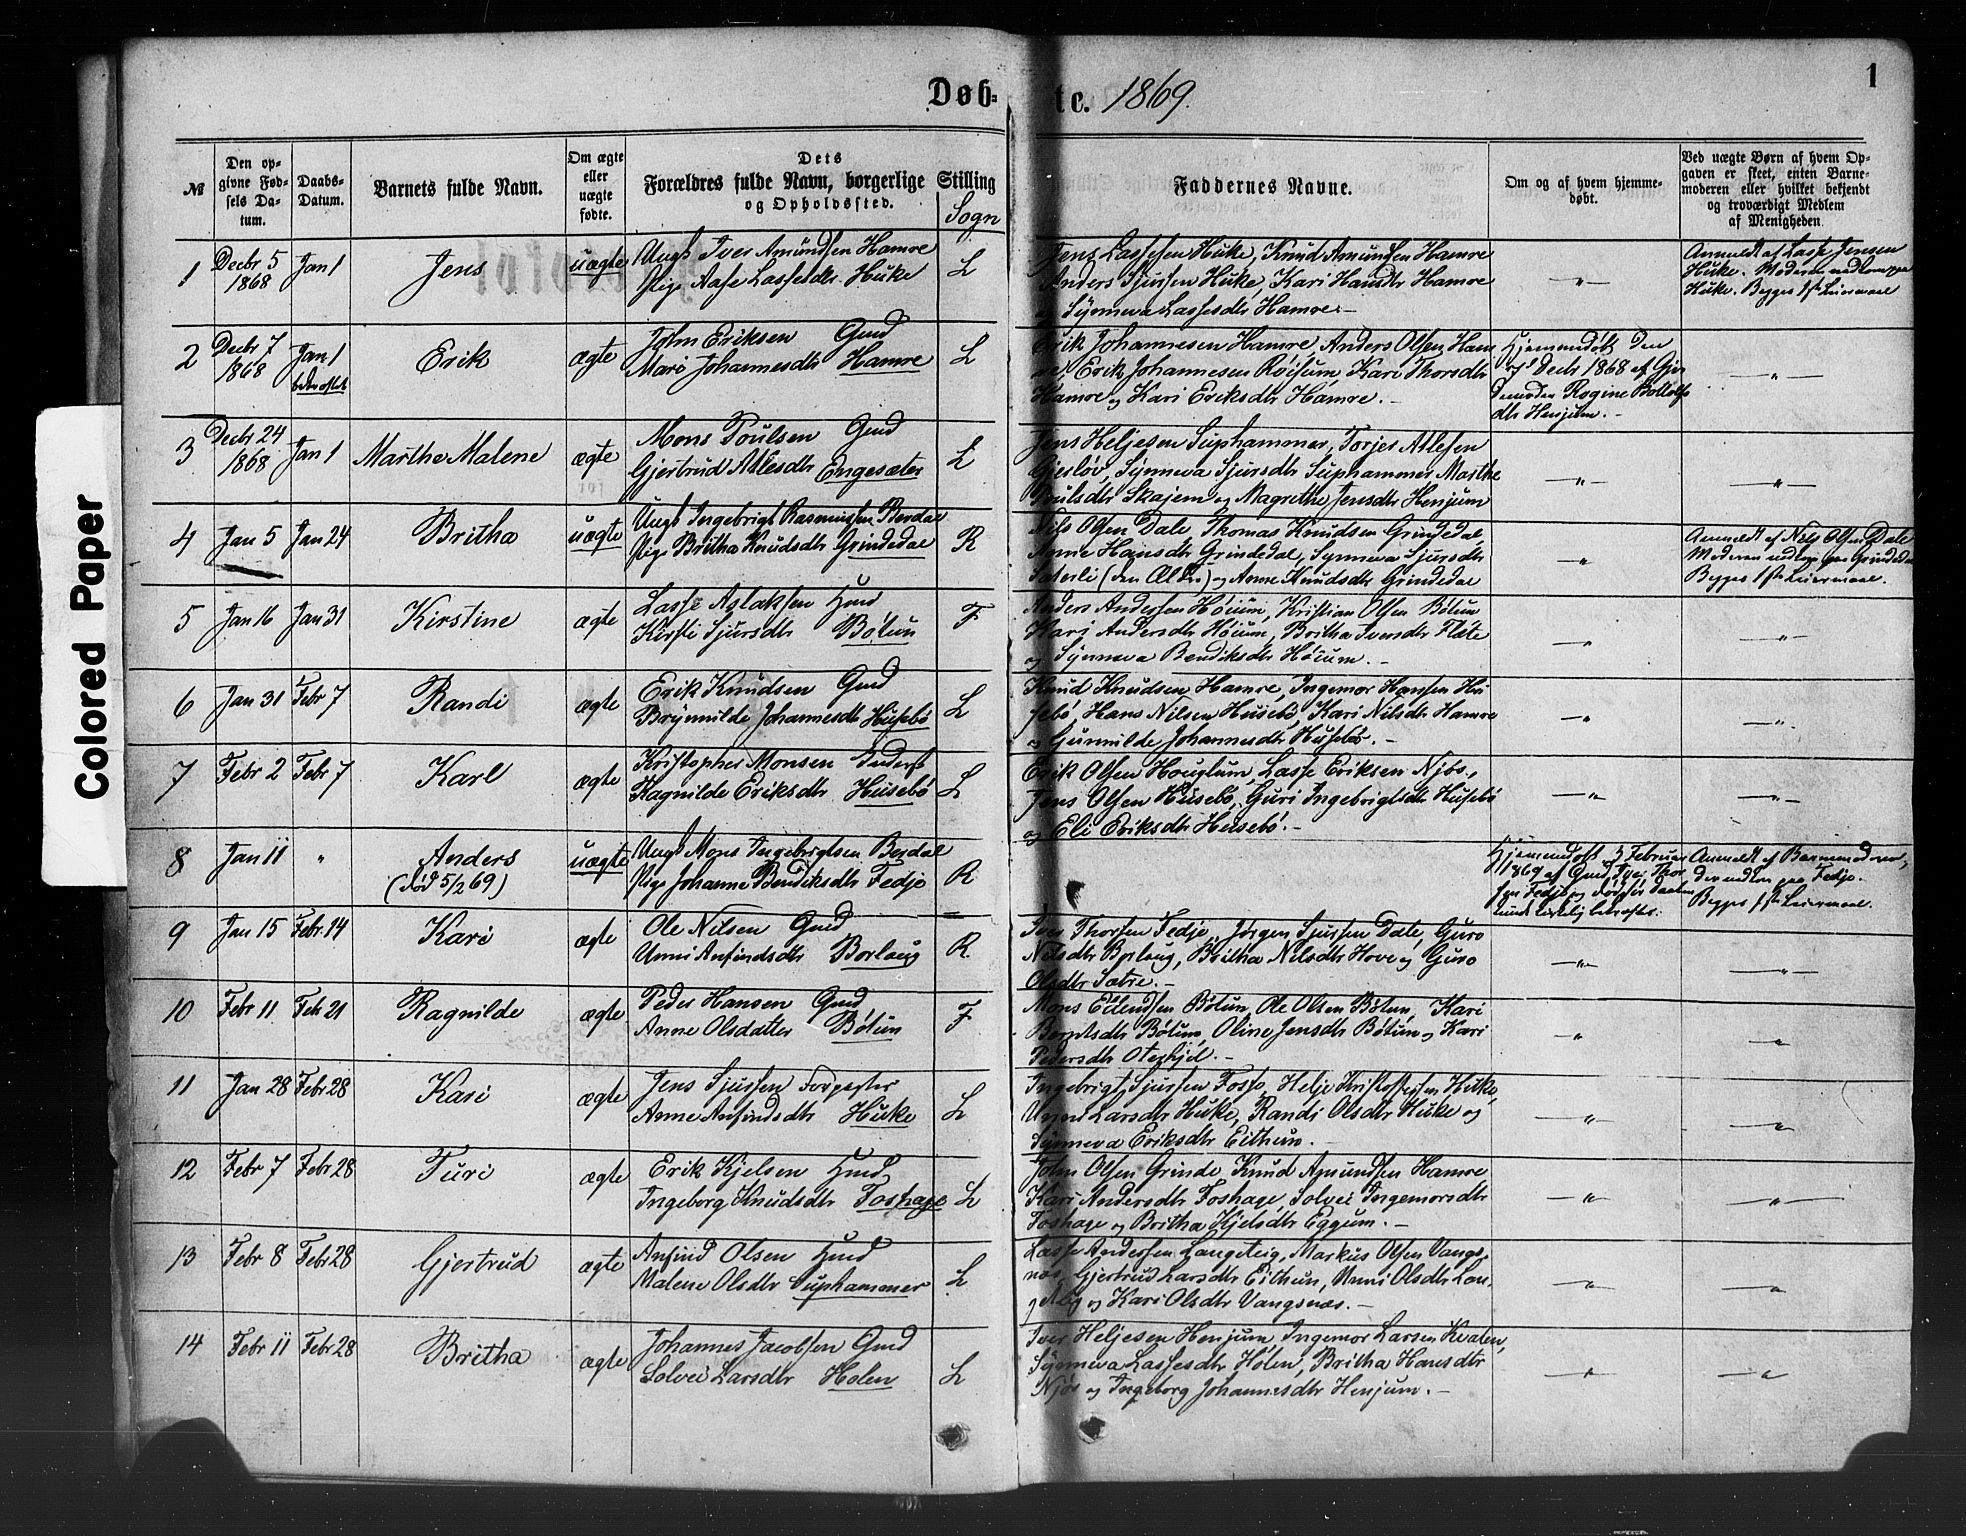 Døb=
te. 1869.
1
Colored Paper
№
Den op=
givne Fød=
sels Da=
tum.
Daabs=
Datum.
Barnets fulde Navn.
Om ægte
eller
uægte
fødte.
Dets
Forældres fulde Navn, borgerlige Stilling
og Opholdssted.
Sogn
Faddernes Navne.
Om og af hvem hjemme=
døbt.
Ved uægte Børn af hvem Op=
gaven er skeet, enten Barne=
moderen eller hvilket bekjendt
og troværdigt Medlem
af Menigheden.
1 Decbr 5 1868 Jan 1 Jens uægte
Ungk Iver Amundsen Hamre
Pige Aase Lassesdtr Huke L
Jens Lassesen Huke, Knud Amundsen Hamre
Anders Sjursen Huke, Kari Hansdtr Hamre
og Synneva Lassesdtr Hamre. -
—„—
Anmeldt af Lasse Jensen
Huke. Moderen nedkom paa
Huke. Begges 1ste Leiermaal
2 Decbr 7 1868 Jan 1 bekræftet Erik ægte
John Eriksen Gmd
Mari Johannesdtr Hamre L
Erik Johannesen Hamre, Anders Olsen Ham
re, Erik Johannesen Røisum, Kari Thorsdtr
Hamre og Kari Eriksdtr Hamre. -
Hjemmedøbt den
7de Decbr 1868 af Gjor
demoder Rogine Botolfs
dtr Henjum. -
—„—
3 Decbr 24 1868 Jan 1 Marthe Malene ægte
Mons Poulsen Gmd
Gjertrud Atlesdtr Engesæter L
Jens Heljesen Suphammer, Torjer Atlesen
Gjesløv, Synneva Sjursdtr Suphammer Marthe
Poulsdtr Skajem og Magrethe Jensdtr Henjum
—„—
—„—
4 Jan 5 Jan 24 Britha uægte
Ungk Ingebrigt Rasmussen Berdal
Pige Britha Knudsdtr Grindedal R
Nils Olsen Dale, Thomas Knudsen Grindedal,
Anne Hansdtr Grindedal, Synneva Sjursdtr
Sæterli (den Ældre) og Anne Knudsdtr Grindedal
„
Anmeldt af Nils Olsen Dale
Moderen nedkom paa Grindedal
Begges 1ste Leiermaal.
5 Jan 16 Jan 31 Kirstine ægte
Lasse Aslaksen Hmd
Kirsti Sjursdtr Bøtun F
Anders Andersen Høium, Kristian Olsen Bøtun
Kari Andersdtr Høium, Britha Iversdtr Flåte
og Synneva Bendiksdtr Høium. -
—„—
—„—
6 Jan 31 Febr 7 Randi ægte
Erik Knudsen Gmd
Brynnilde Johannesdtr Husebø L
Knud Knudsen Hamre, Ingemor Hansen Hu
sebø, Hans Nilsen Husebø, Kari Nilsdtr Hamre
og Gunnilde Johannesdtr Husebø. -
—„
—„—
7 Febr 2 Febr 7 Karl ægte
Kristopher Monsen Inderst
Ragnilde Eriksdtr Husebø L
Erik Olsen Houglum, Lasse Eriksen Njøs,
Jens Olsen Husebø, Guri Ingebrigtsdtr Husebø
og Eli Eriksdtr Husebø. -
—„—
—„—
8 Jan 11 „ Anders uægte
(død 5/2 69)
Ungk Mons Ingebrigtsen Berdal
Pige Johanne Bendiksdtr Fedje R
Hjemmedøbt 3 Februar
1869 af Gmd Iver Thor
sen Fedje og død før Daaben
kunde kirkelig bekræftes.
Anmeldt af Barnemoderen,
der nedkom paa Fedje.
Begges 1ste Leiermaal.
9 Jan 15 Febr 14 Kari ægte
Ole Nilsen Gmd
Unni Anfindsdtr Borlaug R.
Iver Thorsen Fedje, Jørgen Sjursen Dale, Guro
Nilsdtr Borlaug, Britha Nilsdtr Hove og Guro
Olsdtr Sætre. -
—„—
—„—
10 Febr 11 Feb 21 Ragnilde ægte
Peder Hansen Gmd
Anne Olsdatter Bøtun F
Mons Ellendsen Bøtun, Ole Olsen Bøtun, Kari
Berntsdtr Bøtun, Oline Jensdtr Bøtun og Kari
Pedersdtr Oterhjel. -
„
„
11 Jan 28 Febr 28 Kari ægte
Jens Sjursen Forpagter
Anne Anfindsdtr Huke L
Ingebrigt Sjursen Fosso, Helje Kristoffersen Huke,
Larsdtr Huke, Randi Olsdtr Huke og
Synneva Eriksdtr Eithun. -
—„—
„
12 Febr 7 Febr 28 Turi ægte
Erik Kjelsen Hmd
Ingeborg Knudsdtr Foshage L
John Olsen Grinde, Knud Amundsen Hamre
Kari Andersdtr Foshage, Solvei Ingemorsdtr
Foshage og Britha Kjelsdtr Eggum. -
—„—
—„—
13 Febr 8 Febr 28 Gjertrud ægte
Anfind Olsen Hmd
Malene Olsdtr Suphammer L
Lasse Andersen Langeteig, Markus Olsen Vangs-
næs, Gjertrud Larsdtr Eithun, Unni Olsdtr Lan-
geteig og Kari Olsdtr Vangsnæs. -
—„—
—„
14 Febr 11 Febr 28 Britha ægte
Johannes Jacobsen Gmd
Solvei Larsdtr Holen L
Iver Heljesen Henjum, Ingemor Larsen Kvalen,
Synneva Lassesdtr Holen, Britha Hansdtr
Njøs og Ingeborg Johannesdtr Henjum. -
—„—
—„